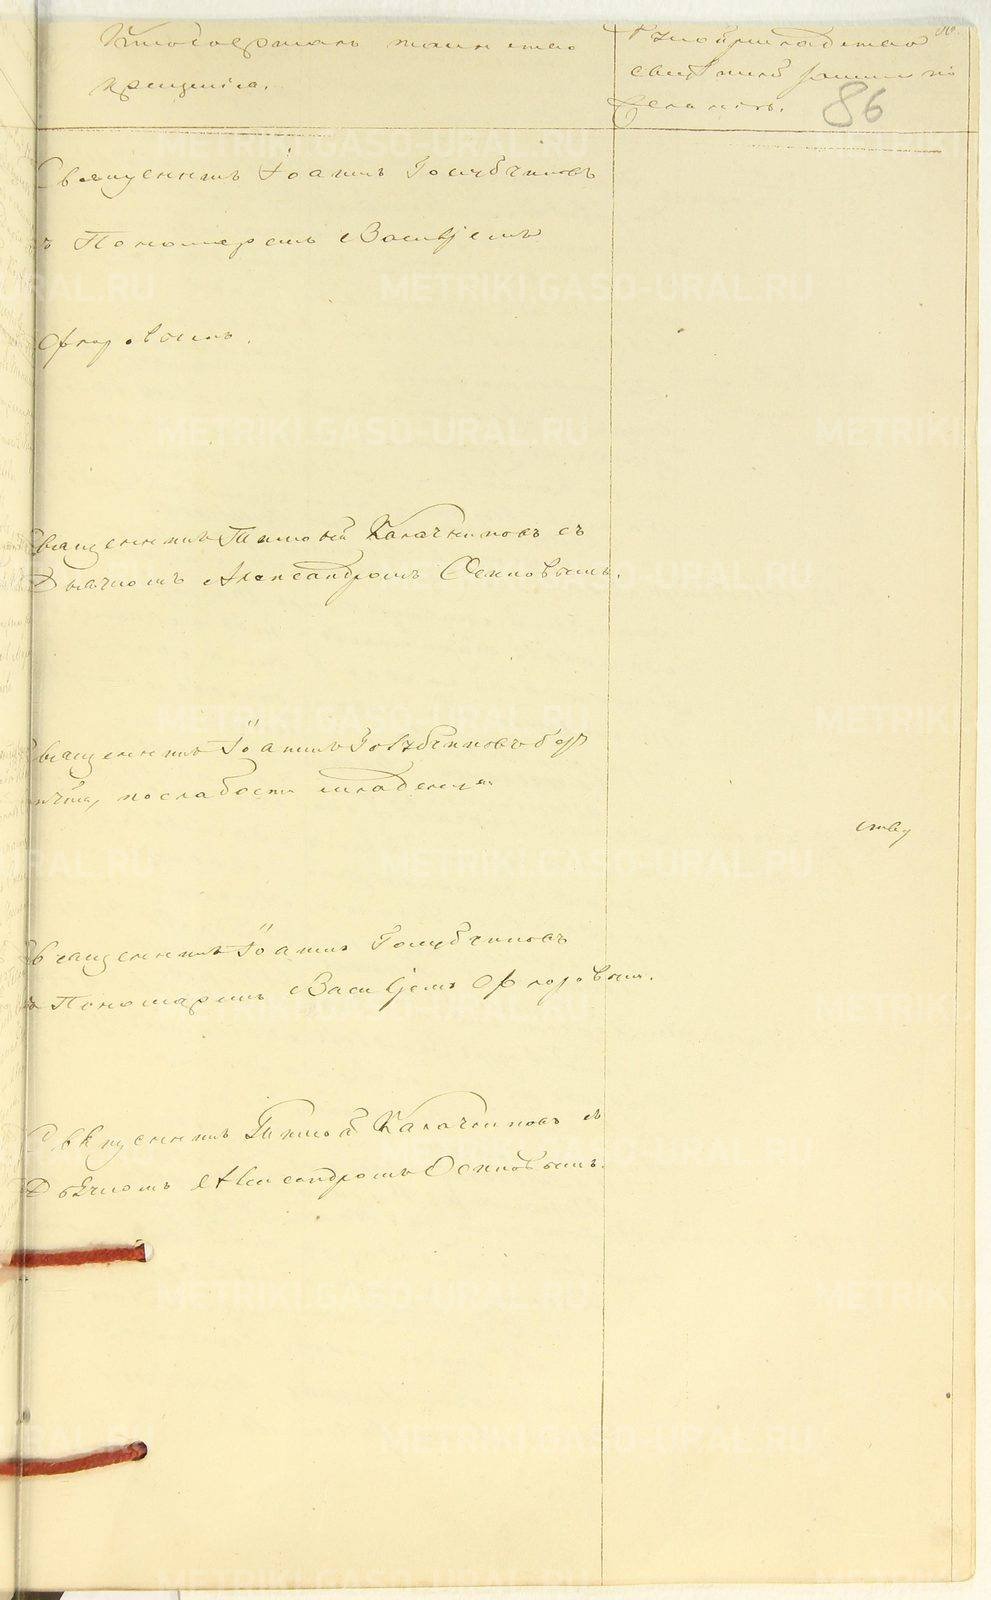 Кто совершалъ таинство
крещенія.
Рукоприкладство
свидѣтелей записи по
желанію.
86
Священникъ Іоаннъ Голубчиковъ
съ Пономаремъ Васильемъ
Флоровымъ.
Священникъ Тимоѳей Калачниковъ съ
Дьячкомъ Александромъ Осиповымъ.
Священникъ Іоаннъ Голубчиковъ безъ
причта, по слабости младенца
ству
Священникъ Іоаннъ Голубчиковъ
съ Пономаремъ Васильемъ Флоровымъ.
Священникъ Тимоѳей Калачниковъ съ
Дьячкомъ Александромъ Осиповымъ.
METRIKI.GASO-URAL.RU